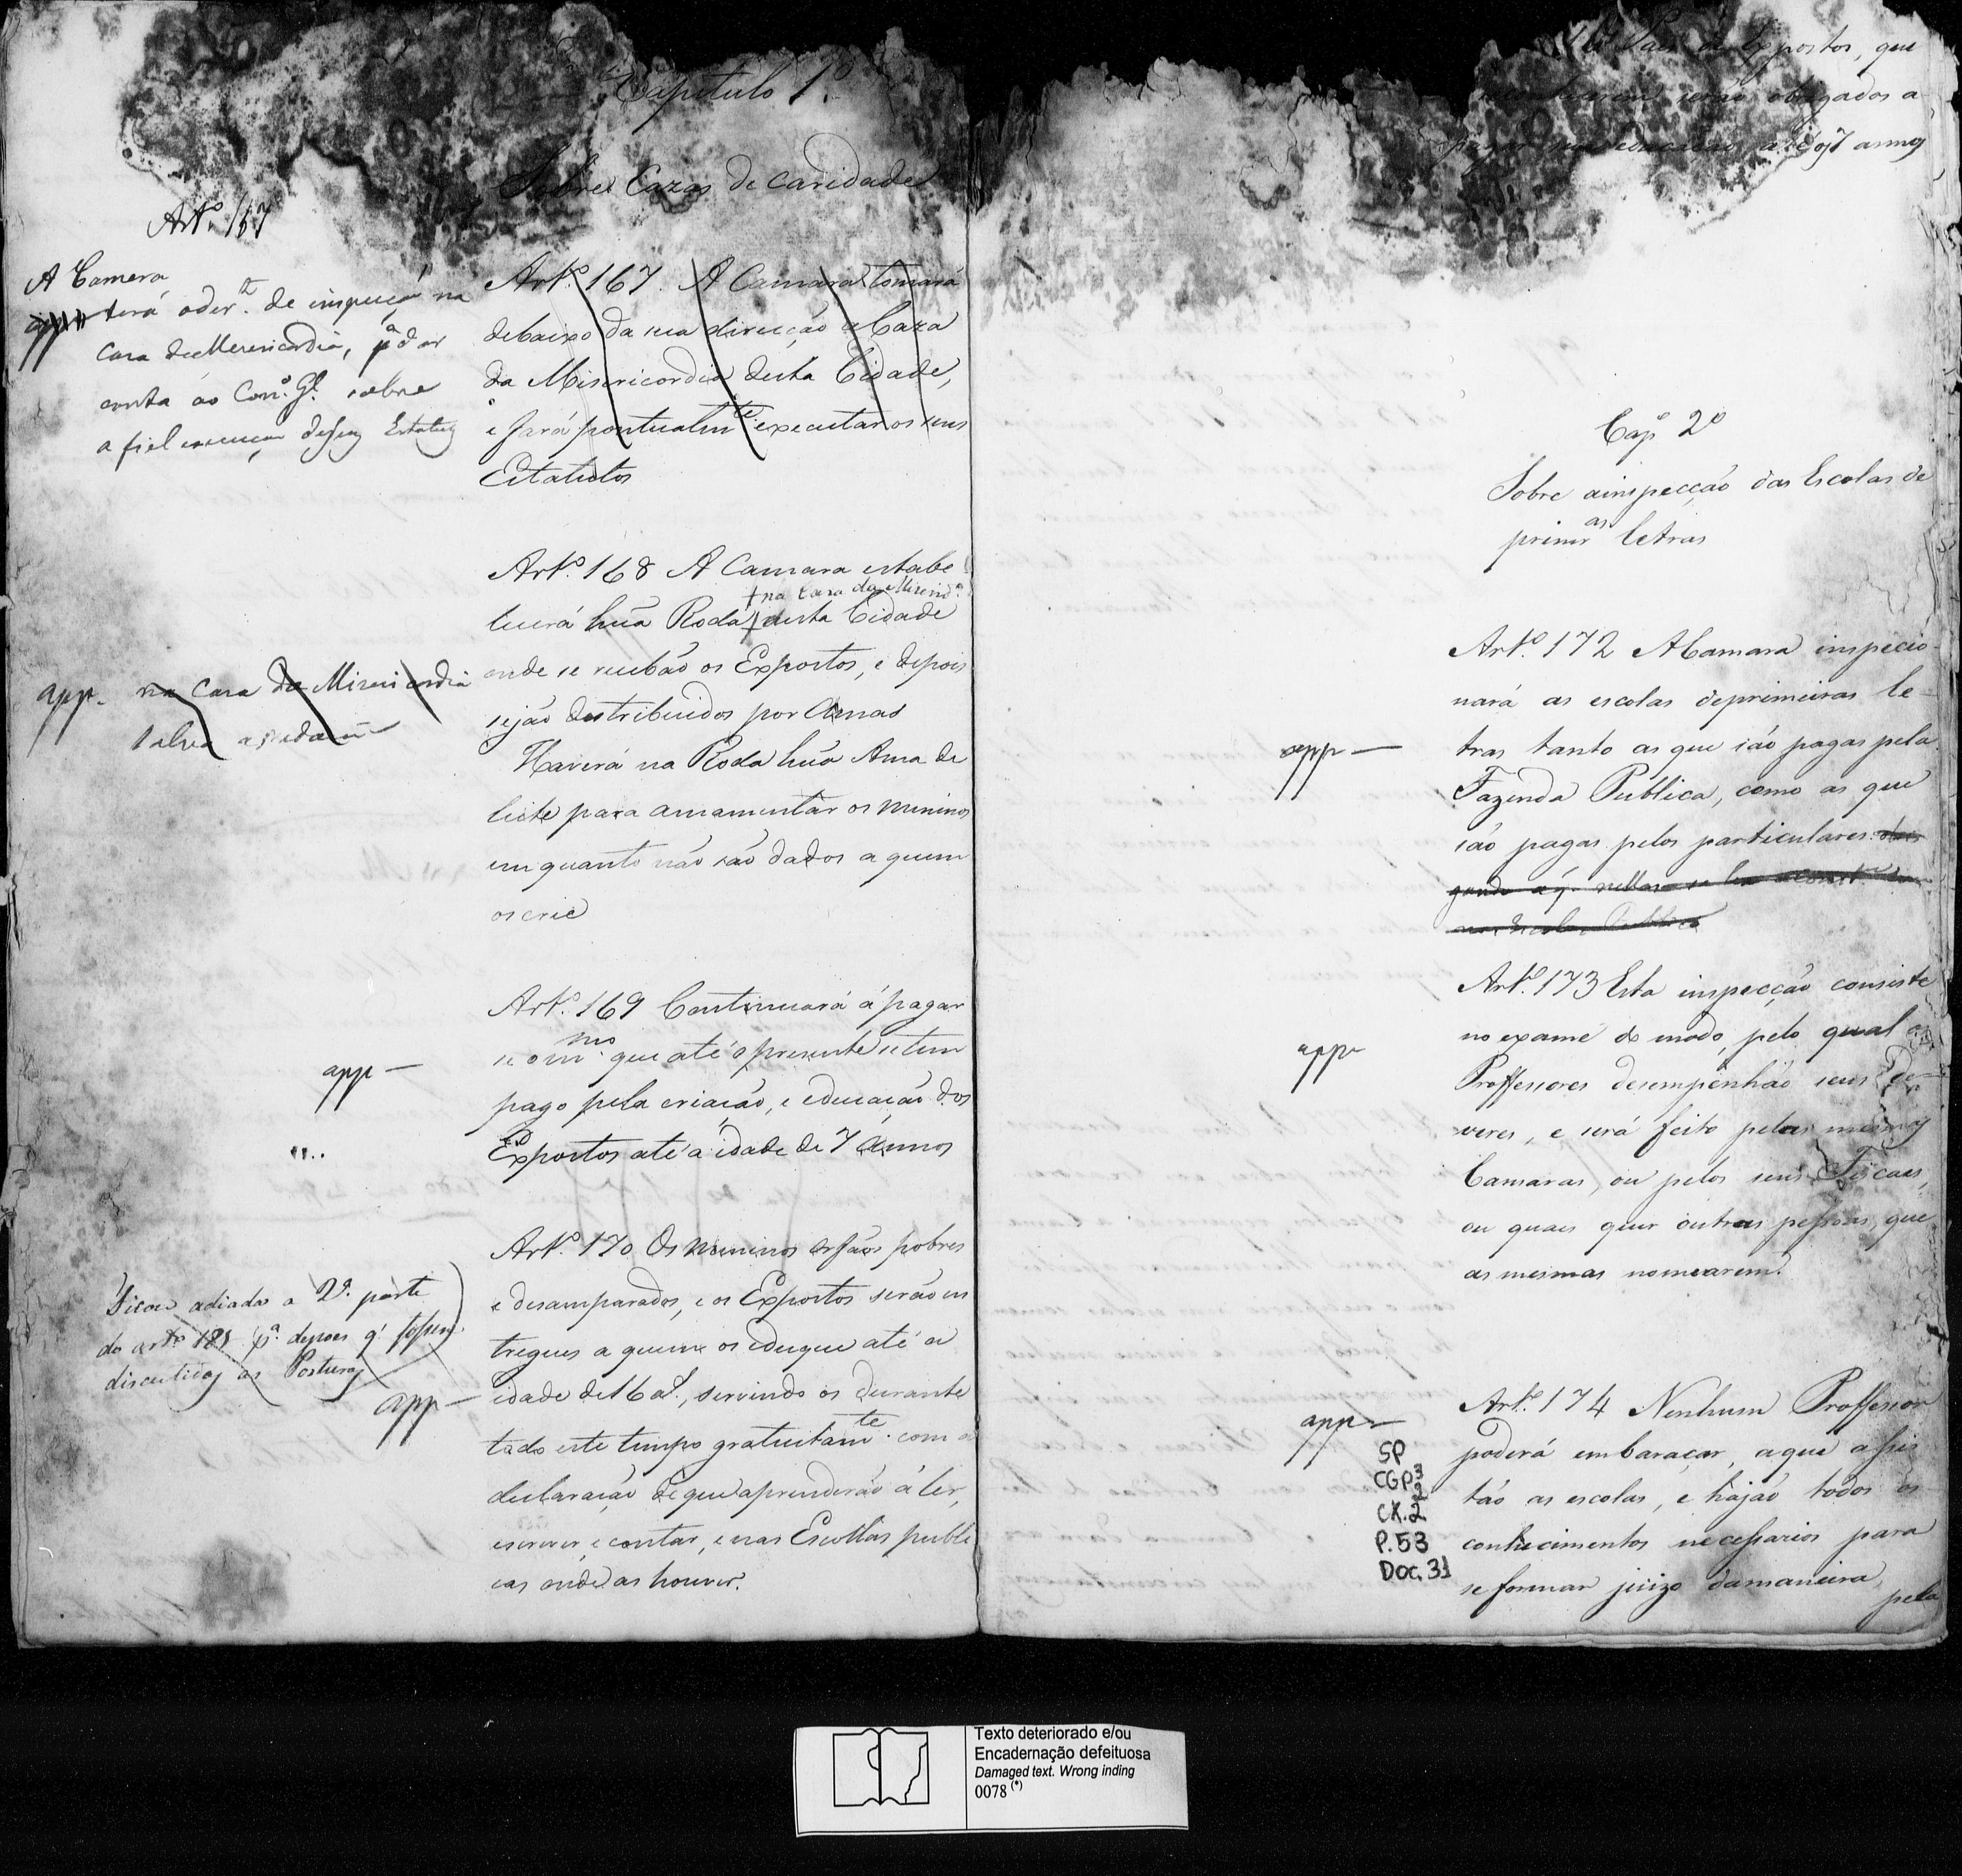 Capitulo 1º
Sobre Cazas de caridade
Artº 167
A Camera
terá o dirtº de inspeçaõ na
Casa de Merericordia, pª dar
conta ao Conº Gl. sobre
a fiel execuçaõ Estatutos
Artº 167. A Camara tomará
debaixo da sua direcçaõ a Caza
da Misericordia desta Cidade,
e fará pontualmte executar os seus
Estatutos
Artº 168 A Camara estabe
lecerá hũa Roda desta Cidade
na Caza da Miserida
onde se recebão os Expostos, e depois
sejão destribuidos por Amas
Haverá na Roda hũa Ama de
leite para amamentar os meninos
em quanto não são dados a quem
os crie
app. na Casa da Misericordia
Artº 169 Continuará á pagar
se o mmo que até o presente se tem
pago pela criação, e educação dos
Expostos até a idade de 7 Annos
app
Artº 170 Os meninos orfãos pobres
e desamparados, e os Expostos serão en
tregues a quem os eduque até a
idade de 16 as, servindo os durante
todo este tempo gratuitamte com a
declaração de que aprenderão á ler,
escrever, e contar, e nas Escollas publi
cas onde as houver.
Ficou adiada a 2ª parte
do artº 181 pª depois q' fossem
discutidas as Posturas
app
Expostos, que
serão obrigados a
pagar sua educação até os 7 annos
Capº 2º
Sobre a inspecção das Escolas de
primras letras
Artº 172 A Camara inspecio
nará as escolas de primeiras le
tras tanto as que são pagas pela
Fazenda Publica, como as que
são pagas pelos particulares
app
Artº 173 Esta inspecção consiste
no exame do modo, pelo qual os
Proffessores desempenhão seus de
veres, e será feito pelas mesmas
Camaras, ou pelos seus Fiscaes,
ou quaes quer outras pessoas, que
as mesmas nomearem.
app
Artº 174 Nenhum Proffessor
poderá embaraçar, a que assis
tão as escolas, e hajão todos os
conhecimentos necessarios para
se formar juizo da maneira,
pela
app
SP
CGP3
CX.2
P.53
Doc.31
Texto deteriorado e/ou
Encadernação defeituosa
Damaged text. Wrong inding
0078 (*)